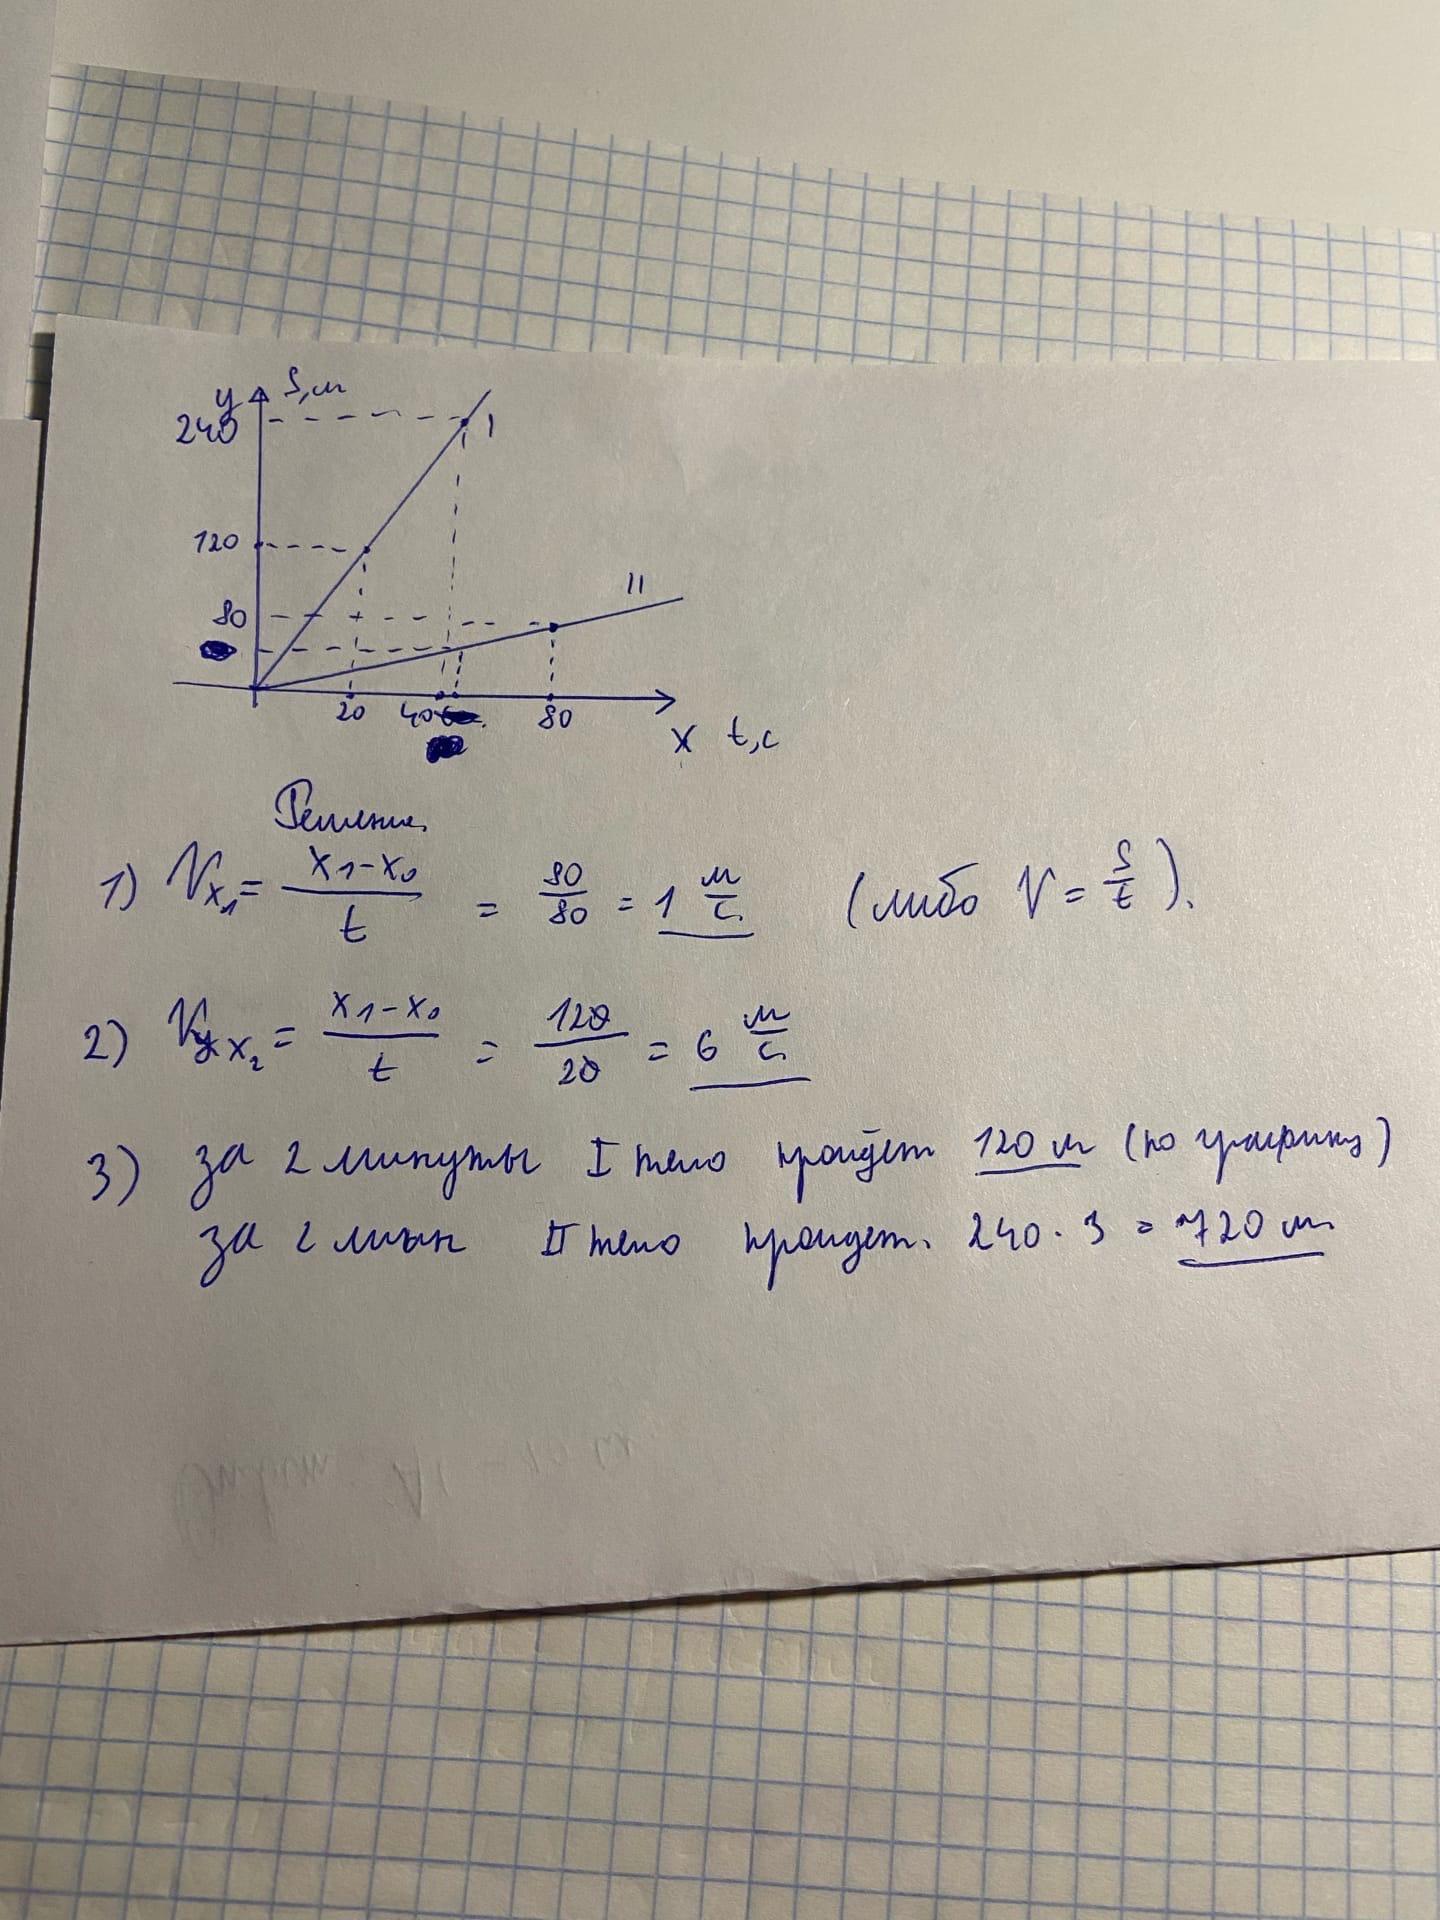 y S,м
240
I
120
II
80
20 40 80
x t,с
Решение.
1) Vx₁ = (x₁-x₀)/t = 80/80 = 1 м/с (либо V = S/t).
2) Vx₂ = (x₁-x₀)/t = 120/20 = 6 м/с
3) за 2 минуты I тело пройдёт 120 м (по графику)
за 2 мин II тело пройдет. 240 · 3 = 720 м.